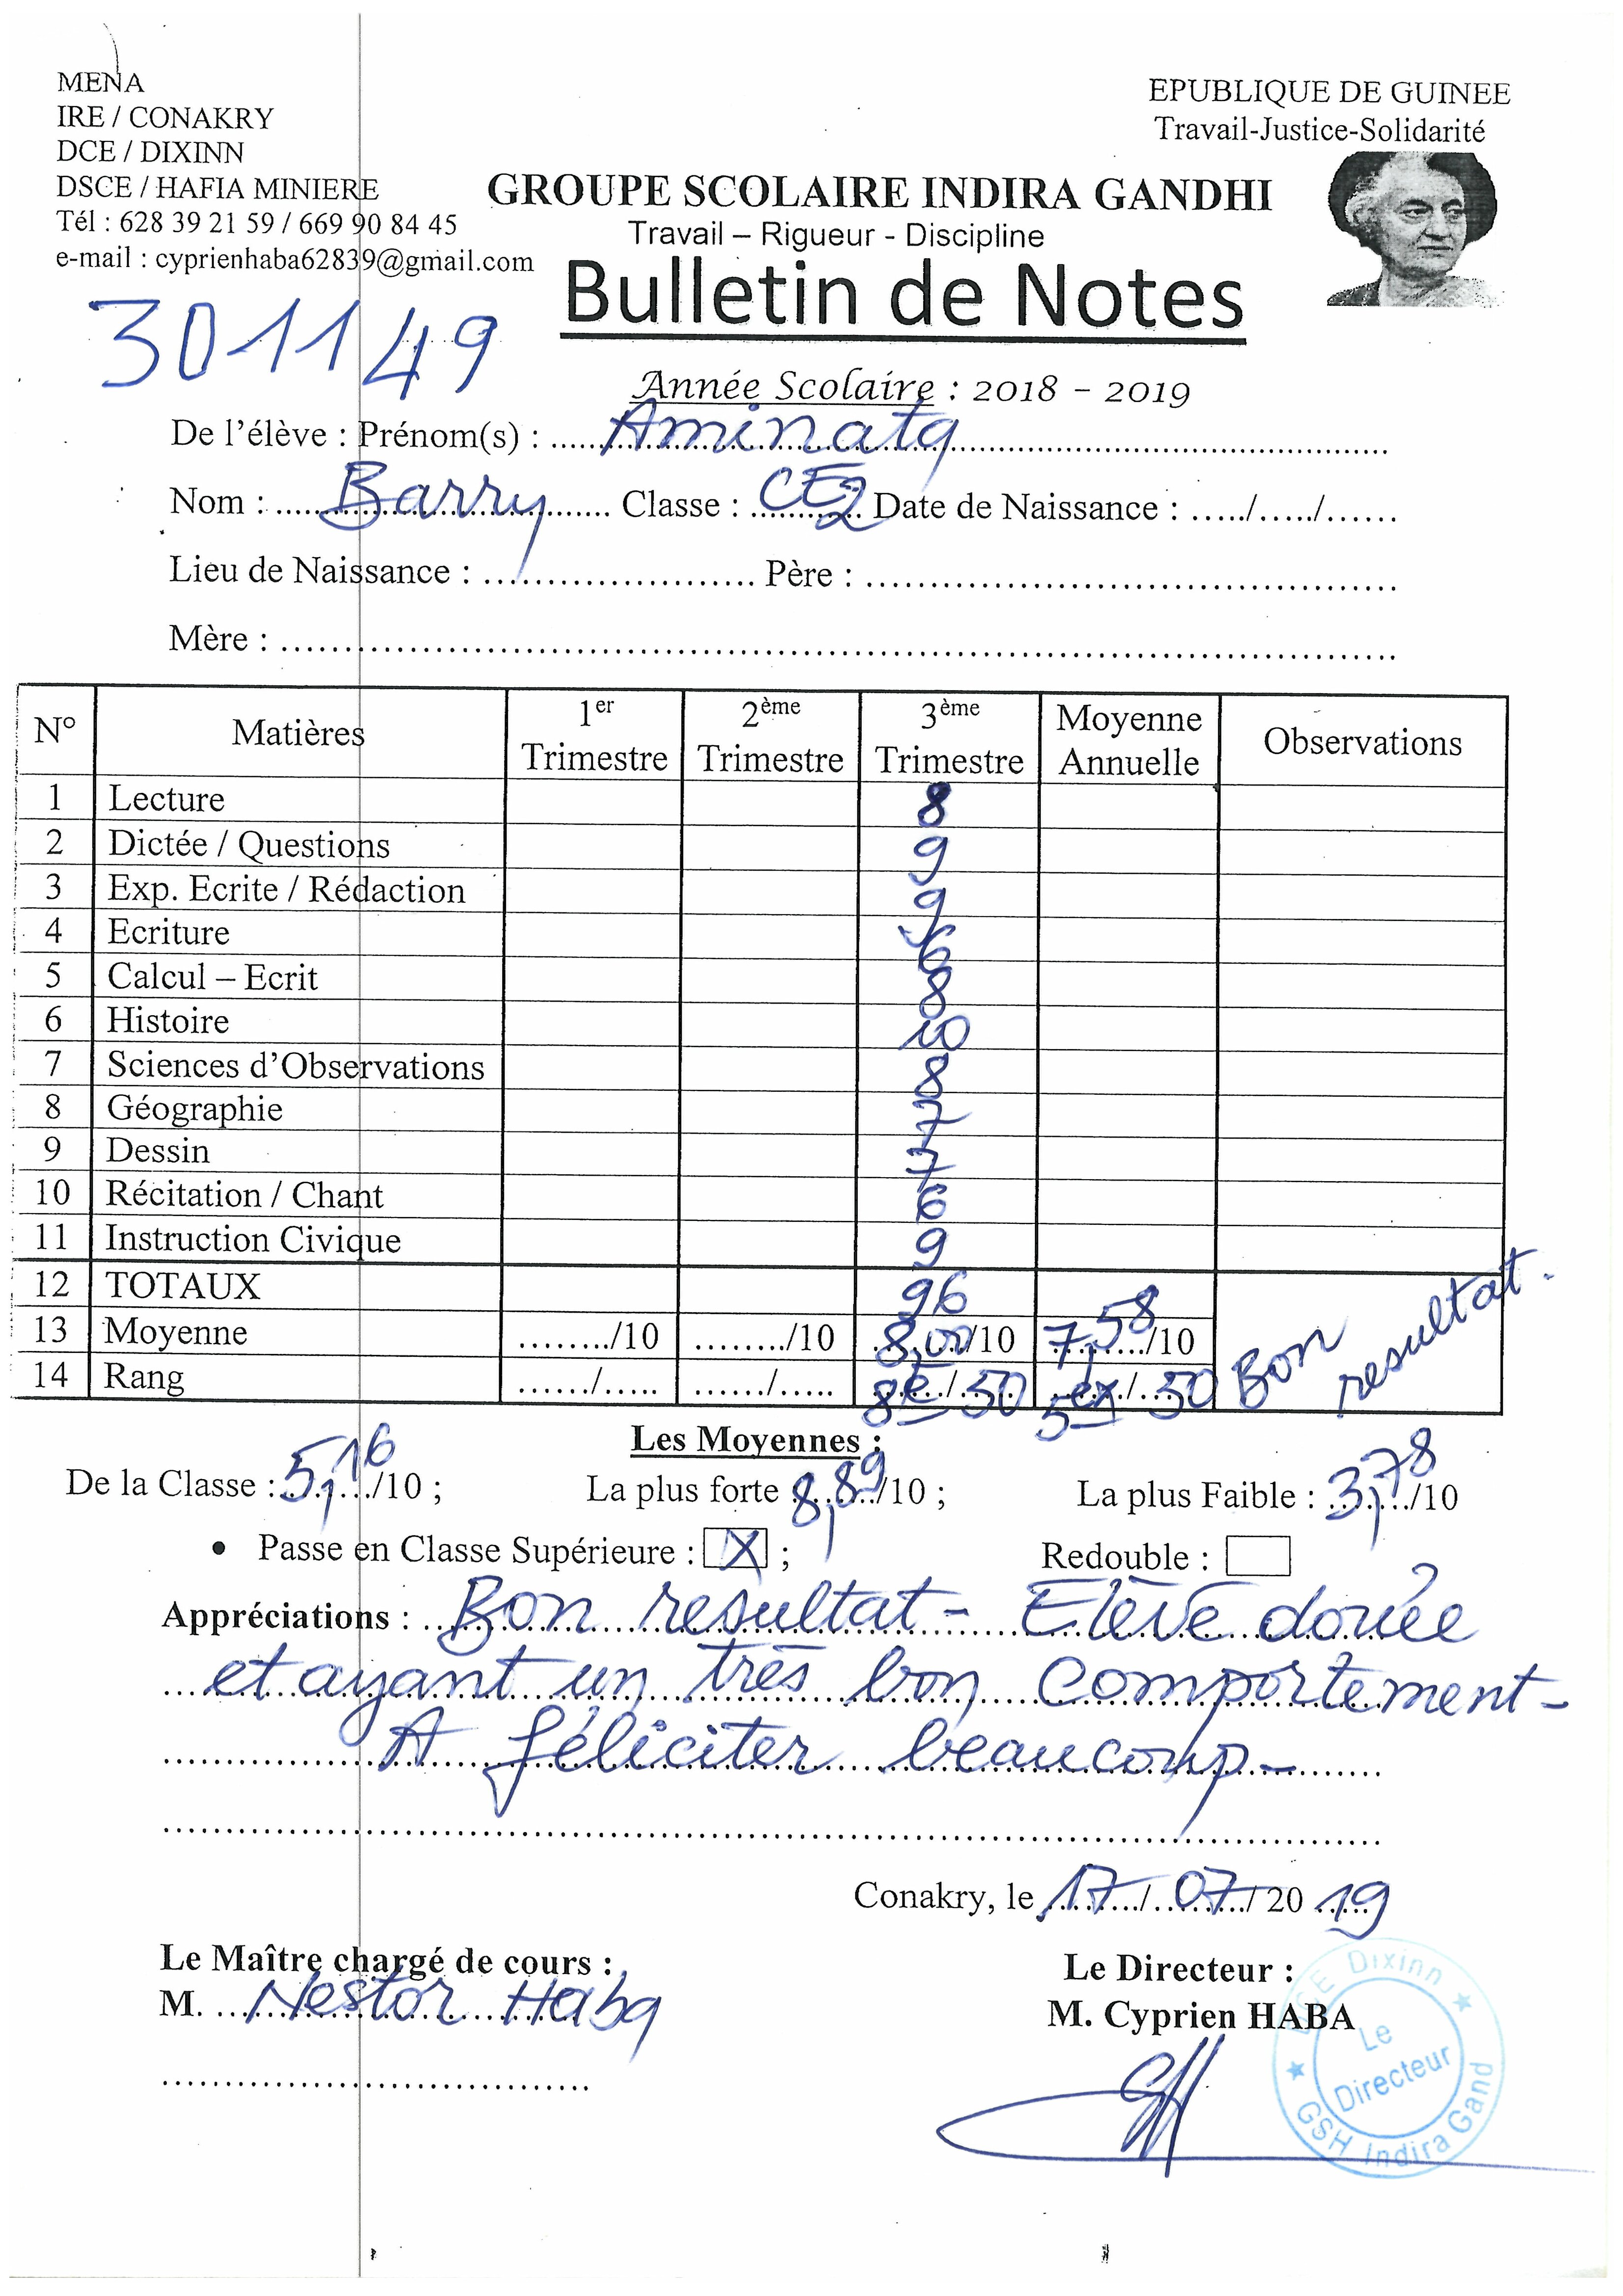 MENA
IRE / CONAKRY
DCE / DIXINN
DSCE / HAFIA MINIERE
Tél : 628 39 21 59 / 669 90 84 45
e-mail : cyprienhaba62839@gmail.com
EPUBLIQUE DE GUINEE
Travail-Justice-Solidarité
GROUPE SCOLAIRE INDIRA GANDHI
Travail – Rigueur - Discipline
Bulletin de Notes
301149
Année Scolaire : 2018 - 2019
De l'élève : Prénom(s) : Aminata
Nom : Barry Classe : CE2 Date de Naissance : ...../...../......
Lieu de Naissance : ..................... Père : ..........................................
Mère : ..........................................................................................
N° Matières 1er Trimestre 2ème Trimestre 3ème Trimestre Moyenne Annuelle Observations
1 Lecture 8
2 Dictée / Questions 9
3 Exp. Ecrite / Rédaction 9
4 Ecriture 6
5 Calcul – Ecrit 8
6 Histoire 10
7 Sciences d'Observations 8
8 Géographie 7
9 Dessin 7
10 Récitation / Chant 6
11 Instruction Civique 9
12 TOTAUX 96
13 Moyenne ......../10 ......../10 8,00/10 7,58/10 Bon resultat.
14 Rang ....../..... ....../..... 8e/50 5ex/50
Les Moyennes :
De la Classe : 5,16/10 ; La plus forte 8,89/10 ; La plus Faible : 3,78/10
• Passe en Classe Supérieure : X ; Redouble :
Appréciations : Bon resultat - Elève douée
et ayant un très bon comportement -
A féliciter beaucoup -
Conakry, le 17/07/2019
Le Maître chargé de cours :
M. Nestor Haba
Le Directeur :
M. Cyprien HABA
DCE Dixinn
Le Directeur
GSH Indira Gand